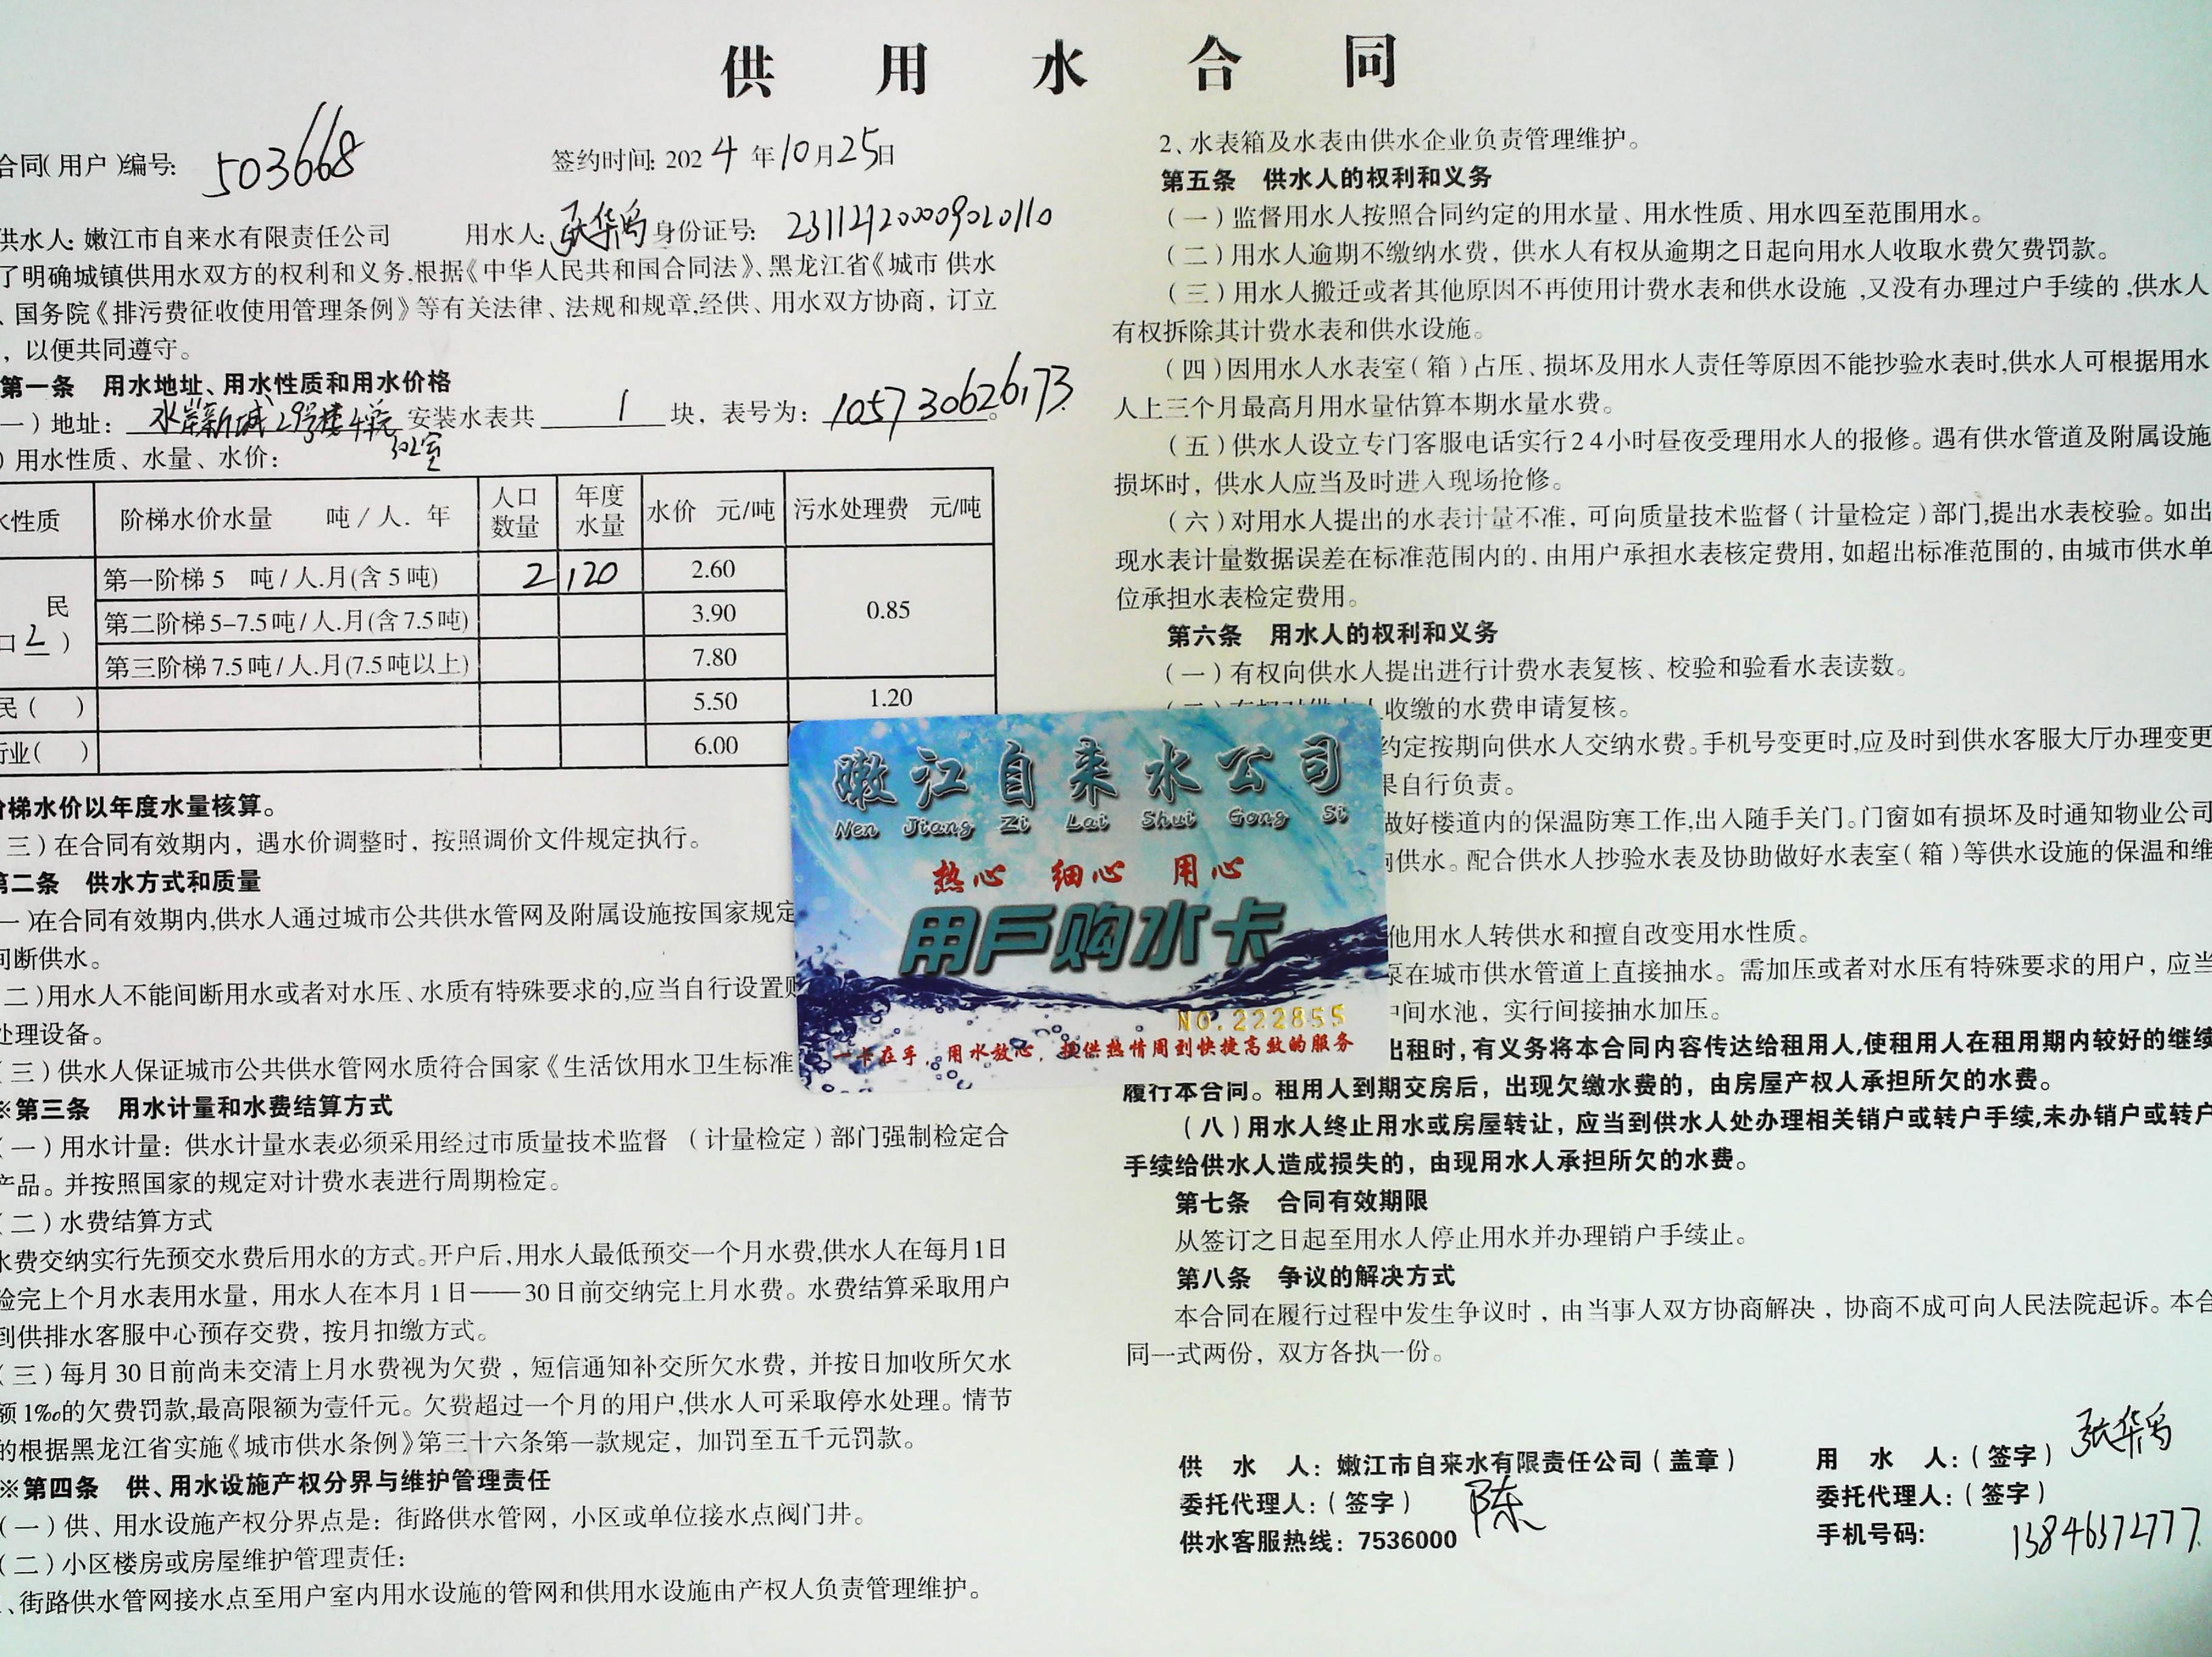 供用水合同
合同(用户)编号: 503668 签约时间: 2024年10月25日
供水人: 嫩江市自来水有限责任公司 用水人: 张华禹 身份证号:
了明确城镇供用水双方的权利和义务,根据《中华人民共和国合同法》、黑龙江省《城市 供水
、国务院《排污费征收使用管理条例》等有关法律、法规和规章,经供、用水双方协商,订立
,以便共同遵守。
第一条 用水地址、用水性质和用水价格
一)地址: 水岸新城29号楼4单元 安装水表共 1 块,表号为: 105730626173
302室
)用水性质、水量、水价:
水性质 阶梯水价水量 吨/人.年 人口数量 年度水量 水价 元/吨 污水处理费 元/吨
民 第一阶梯5 吨/人.月(含5吨) 2 120 2.60 0.85
口2) 第二阶梯5-7.5吨/人.月(含7.5吨) 3.90
第三阶梯7.5吨/人.月(7.5吨以上) 7.80
民( ) 5.50 1.20
行业( ) 6.00
阶梯水价以年度水量核算。
三)在合同有效期内,遇水价调整时,按照调价文件规定执行。
第二条 供水方式和质量
一)在合同有效期内,供水人通过城市公共供水管网及附属设施按国家规定
间断供水。
二)用水人不能间断用水或者对水压、水质有特殊要求的,应当自行设置贮
处理设备。
(三)供水人保证城市公共供水管网水质符合国家《生活饮用水卫生标准
※第三条 用水计量和水费结算方式
(一)用水计量:供水计量水表必须采用经过市质量技术监督 (计量检定)部门强制检定合
产品。并按照国家的规定对计费水表进行周期检定。
(二)水费结算方式
水费交纳实行先预交水费后用水的方式。开户后,用水人最低预交一个月水费,供水人在每月1日
验完上个月水表用水量,用水人在本月1日——30日前交纳完上月水费。水费结算采取用户
到供排水客服中心预存交费,按月扣缴方式。
(三)每月30日前尚未交清上月水费视为欠费,短信通知补交所欠水费,并按日加收所欠水
额1‰的欠费罚款,最高限额为壹仟元。欠费超过一个月的用户,供水人可采取停水处理。情节
的根据黑龙江省实施《城市供水条例》第三十六条第一款规定,加罚至五千元罚款。
※第四条 供、用水设施产权分界与维护管理责任
(一)供、用水设施产权分界点是:街路供水管网,小区或单位接水点阀门井。
(二)小区楼房或房屋维护管理责任:
、街路供水管网接水点至用户室内用水设施的管网和供用水设施由产权人负责管理维护。
2、水表箱及水表由供水企业负责管理维护。
第五条 供水人的权利和义务
(一)监督用水人按照合同约定的用水量、用水性质、用水四至范围用水。
(二)用水人逾期不缴纳水费,供水人有权从逾期之日起向用水人收取水费欠费罚款。
(三)用水人搬迁或者其他原因不再使用计费水表和供水设施,又没有办理过户手续的,供水人
有权拆除其计费水表和供水设施。
(四)因用水人水表室(箱)占压、损坏及用水人责任等原因不能抄验水表时,供水人可根据用水
人上三个月最高月用水量估算本期水量水费。
(五)供水人设立专门客服电话实行24小时昼夜受理用水人的报修。遇有供水管道及附属设施
损坏时,供水人应当及时进入现场抢修。
(六)对用水人提出的水表计量不准,可向质量技术监督(计量检定)部门,提出水表校验。如出
现水表计量数据误差在标准范围内的,由用户承担水表核定费用,如超出标准范围的,由城市供水单
位承担水表检定费用。
第六条 用水人的权利和义务
(一)有权向供水人提出进行计费水表复核、校验和验看水表读数。
(二)有权对供水人收缴的水费申请复核。
约定按期向供水人交纳水费。手机号变更时,应及时到供水客服大厅办理变更
果自行负责。
做好楼道内的保温防寒工作,出入随手关门。门窗如有损坏及时通知物业公司
供水。配合供水人抄验水表及协助做好水表室(箱)等供水设施的保温和维
他用水人转供水和擅自改变用水性质。
泵在城市供水管道上直接抽水。需加压或者对水压有特殊要求的用户,应当
中间水池,实行间接抽水加压。
出租时,有义务将本合同内容传达给租用人,使租用人在租用期内较好的继续
履行本合同。租用人到期交房后,出现欠缴水费的,由房屋产权人承担所欠的水费。
(八)用水人终止用水或房屋转让,应当到供水人处办理相关销户或转户手续,未办销户或转户
手续给供水人造成损失的,由现用水人承担所欠的水费。
第七条 合同有效期限
从签订之日起至用水人停止用水并办理销户手续止。
第八条 争议的解决方式
本合同在履行过程中发生争议时,由当事人双方协商解决,协商不成可向人民法院起诉。本合
同一式两份,双方各执一份。
供水人:嫩江市自来水有限责任公司(盖章) 用水人:(签字) 张华禹
委托代理人:(签字) 陈 委托代理人:(签字)
供水客服热线:7536000 手机号码: 13846372777
嫩江自来水公司
Nen Jiang Zi Lai Shui Gong Si
热心 细心 用心
用户购水卡
NO.222855
一卡在手,用水放心,提供热情周到快捷高效的服务